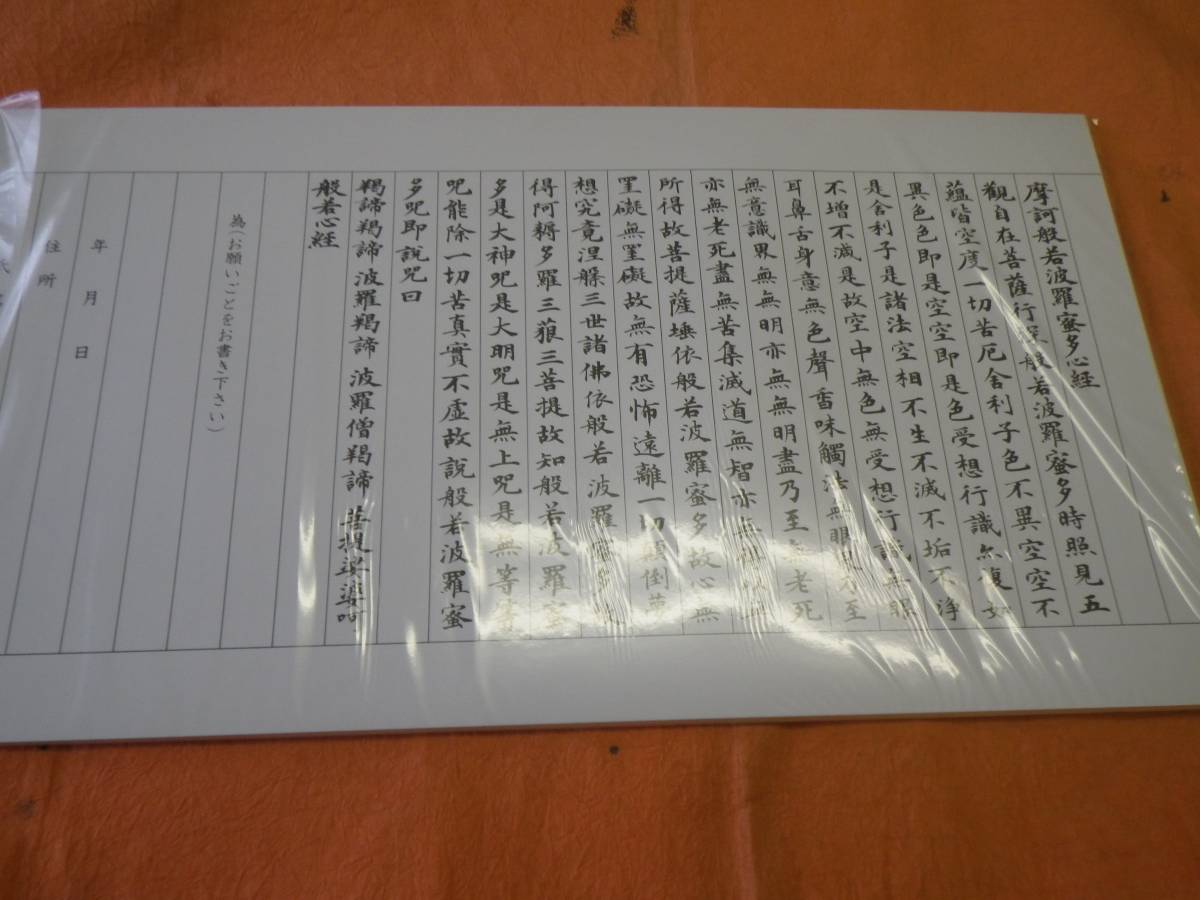 摩訶般若波羅蜜多心経
觀自在菩薩行深般若波羅蜜多時照見五
蘊皆空度一切苦厄舍利子色不異空空不
異色色即是空空即是色受想行識亦復如
是舍利子是諸法空相不生不滅不垢不浄
不增不滅是故空中無色無受想行識無眼
耳鼻舌身意無色聲香味觸法無眼界乃至
無意識界無無明亦無無明盡乃至無老死
亦無老死盡無苦集滅道無智亦無得以無
所得故菩提薩埵依般若波羅蜜多故心無
罣礙無罣礙故無有恐怖遠離一切顛倒夢
想究竟涅槃三世諸佛依般若波羅蜜多故
得阿耨多羅三藐三菩提故知般若波羅蜜
多是大神咒是大明咒是無上咒是無等等
咒能除一切苦真實不虛故說般若波羅蜜
多咒即說咒曰
羯諦羯諦 波羅羯諦 波羅僧羯諦 菩提娑婆訶
般若心経
為(お願いごとをお書き下さい)
年 月 日
住所
氏